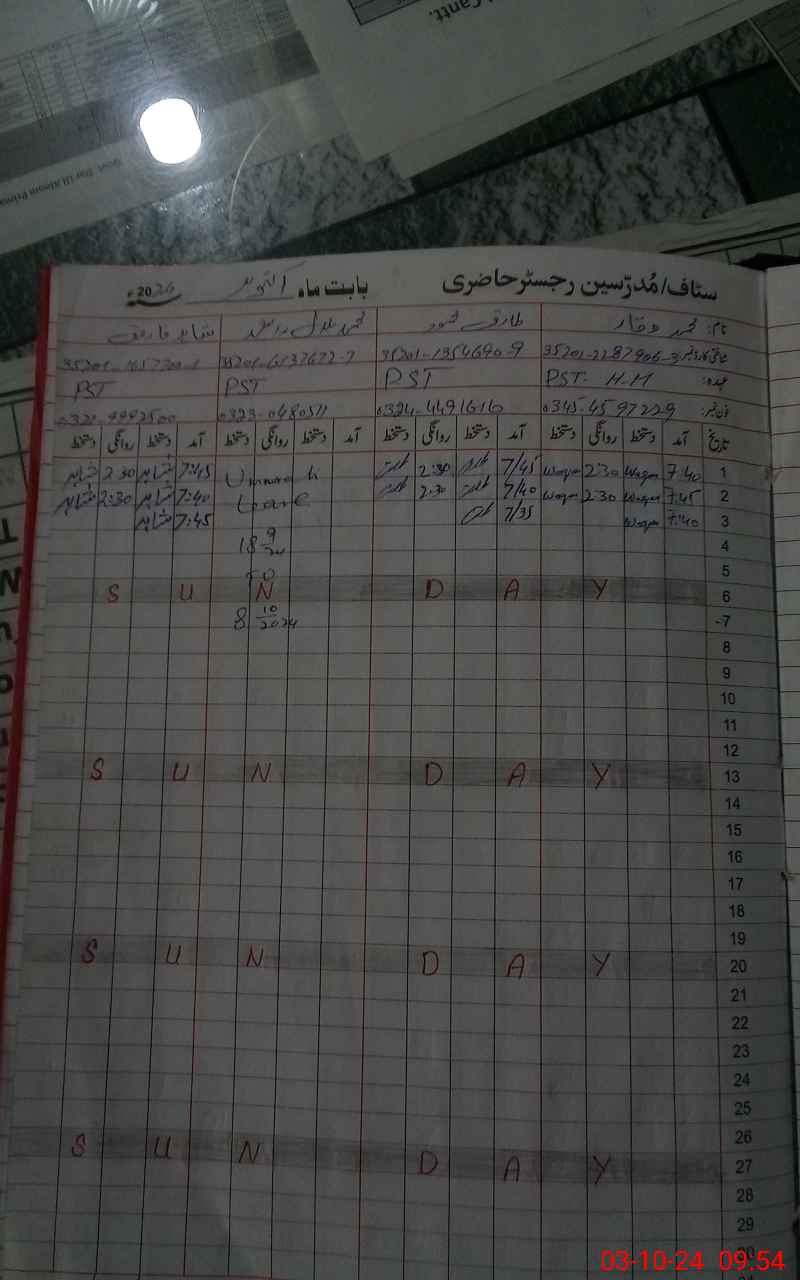 Cantt.
Govt. Dar Ul Aloom Prima
سٹاف/مُدرّسین رجسٹر حاضری بابت ماہ اکتوبر 2024ء
نام: محمد وقار طارق محمود محمد بلال شاہد فاروق
شناختی کارڈ نمبر 35201-1354690-9 35201-6137672-7
عہدہ: PST. H.M PST PST PST
فون نمبر: 0345-4597229 0324-4491616 0323-0480511 0321-9992500
تاریخ آمد دستخط روانگی دستخط آمد دستخط روانگی دستخط آمد دستخط روانگی دستخط آمد دستخط روانگی دستخط
1 7:40 Waqar 2:30 Waqar 7/45 2:30 Ummrah 7:45 شاہد 2:30 شاہد
2 7:45 Waqar 2:30 Waqar 7/40 2:30 Leave 7:40 شاہد 2:30 شاہد
3 7:40 Waqar 7/35 7:45 شاہد
4 18 9/24
5 to
6 S U N D A Y
7 8 10/2024
8
9
10
11
12
13 S U N D A Y
14
15
16
17
18
19
20 S U N D A Y
21
22
23
24
25
26
27 S U N D A Y
28
29
30
03-10-24 09:54